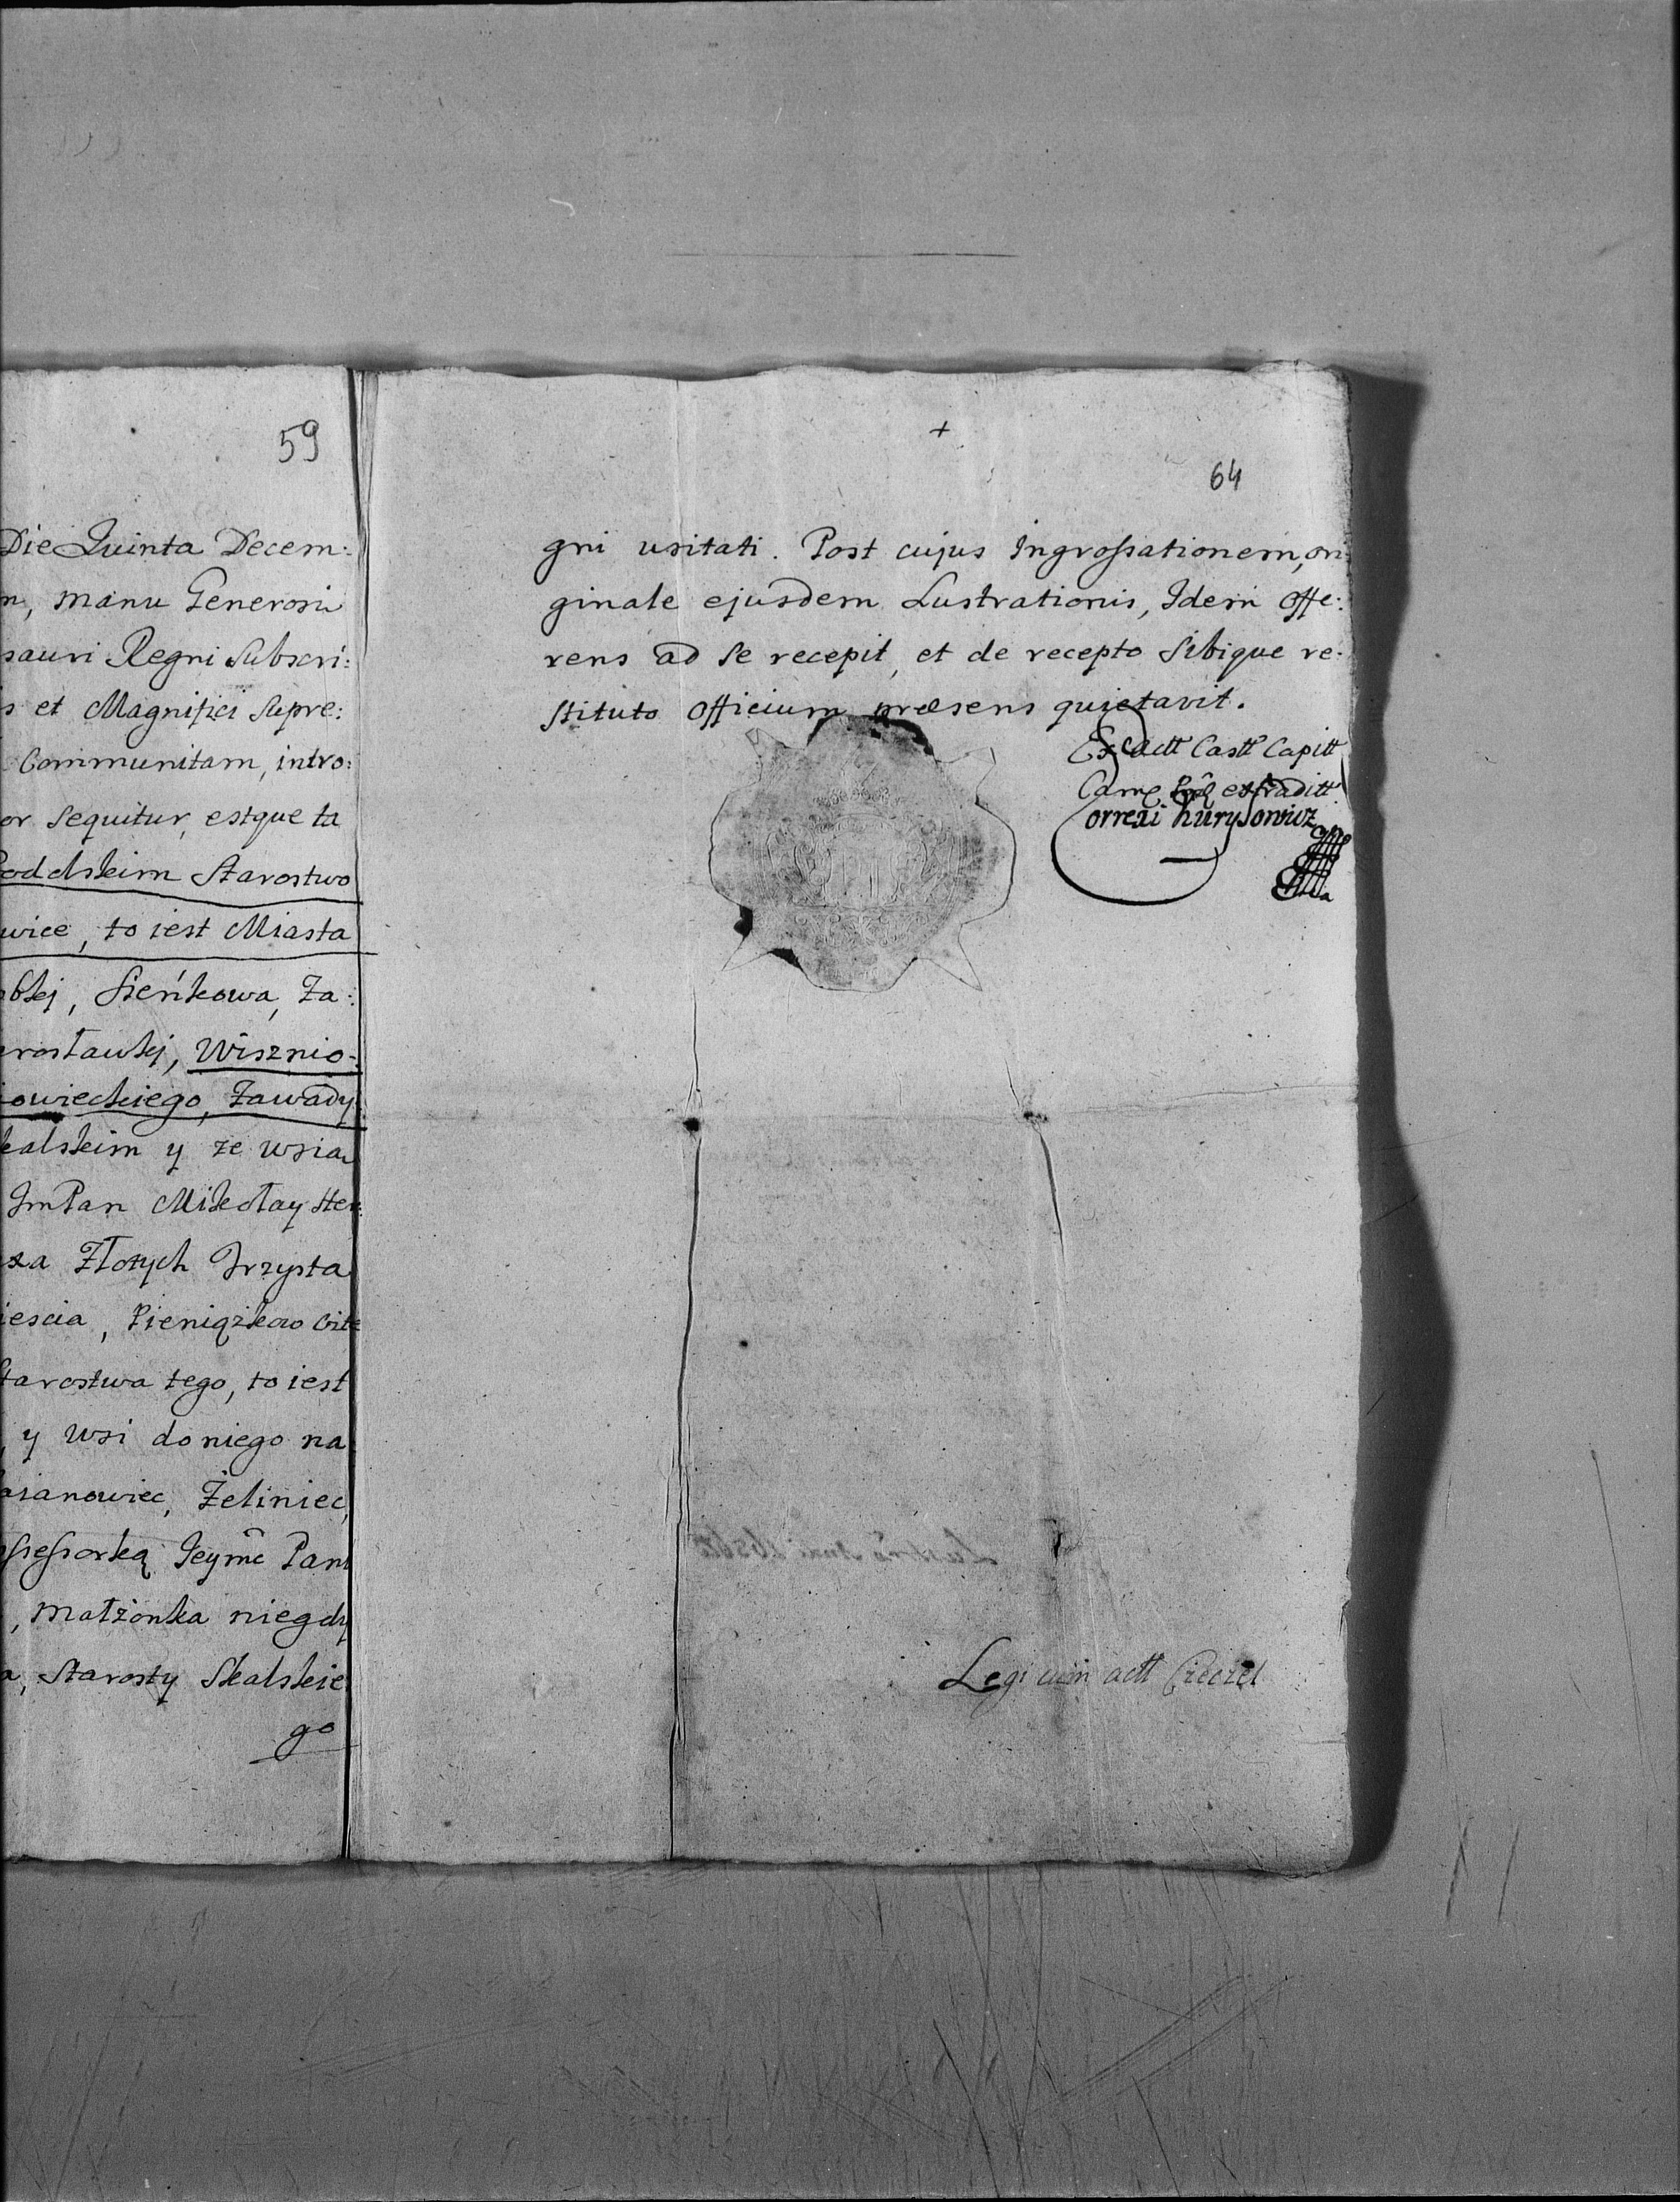 59
Die Quinta Decem:
manu Generosi
sauri Regni Subscri:
s et Magnifici Supre:
Communitam, intro:
or Sequitur, estque ta
Podolskim Starostwo
wice, to iest Miasta
Sieńkowa, Za:
rosławki, Wisznio-
owieckiego, Zawady
kalskim y ze wsia
ImPan Mikołay
xa Złotych Trzysta
iescia,
tarostwa tego, to iest
, y wsi do niego na
asianowiec, Żeliniec,
ssessorką Jeymc̃ Pani
, małżonka niegdy
a, Starosty Skalskie
go
+
64
gni usitati. Post cujus Ingrossationem, ori
ginale ejusdem Lustrationis, Idem Offe:
rens ad se recepit, et de recepto sibique re:
stituto Officium præsens quietavit.
Ex actt Castt Capitt
extraditt
Correxi
Legi cum actt